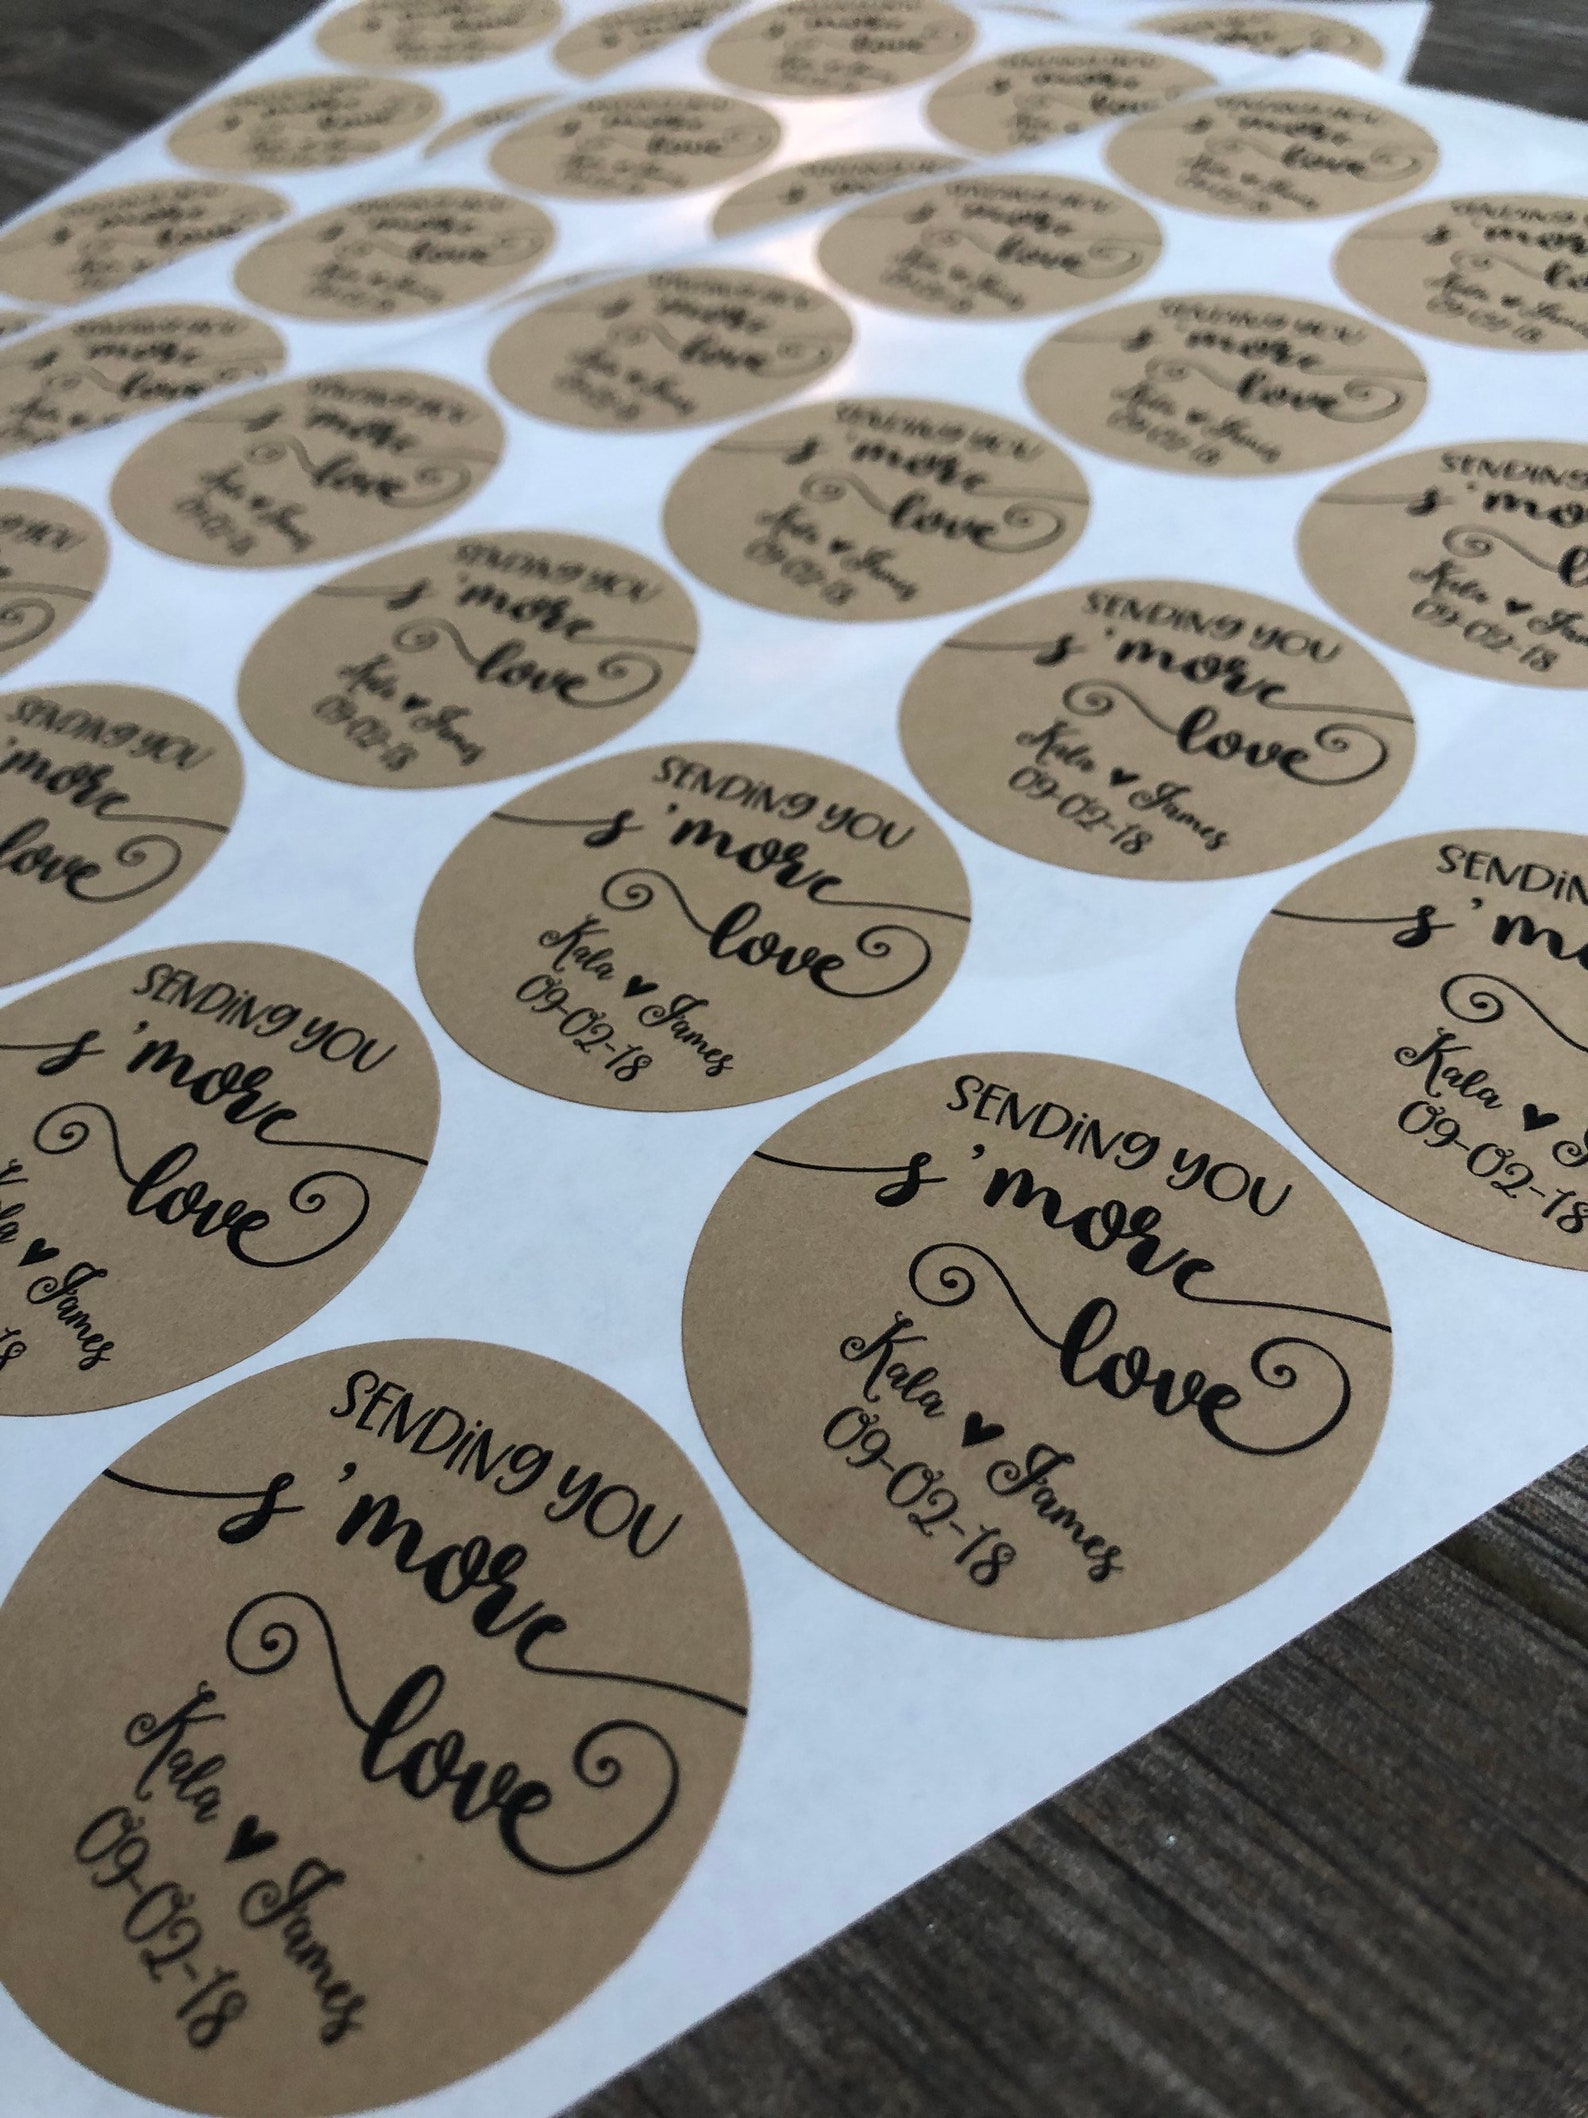 SENDiNg yOU
s'more
love
Kala ♥ James
09-02-18